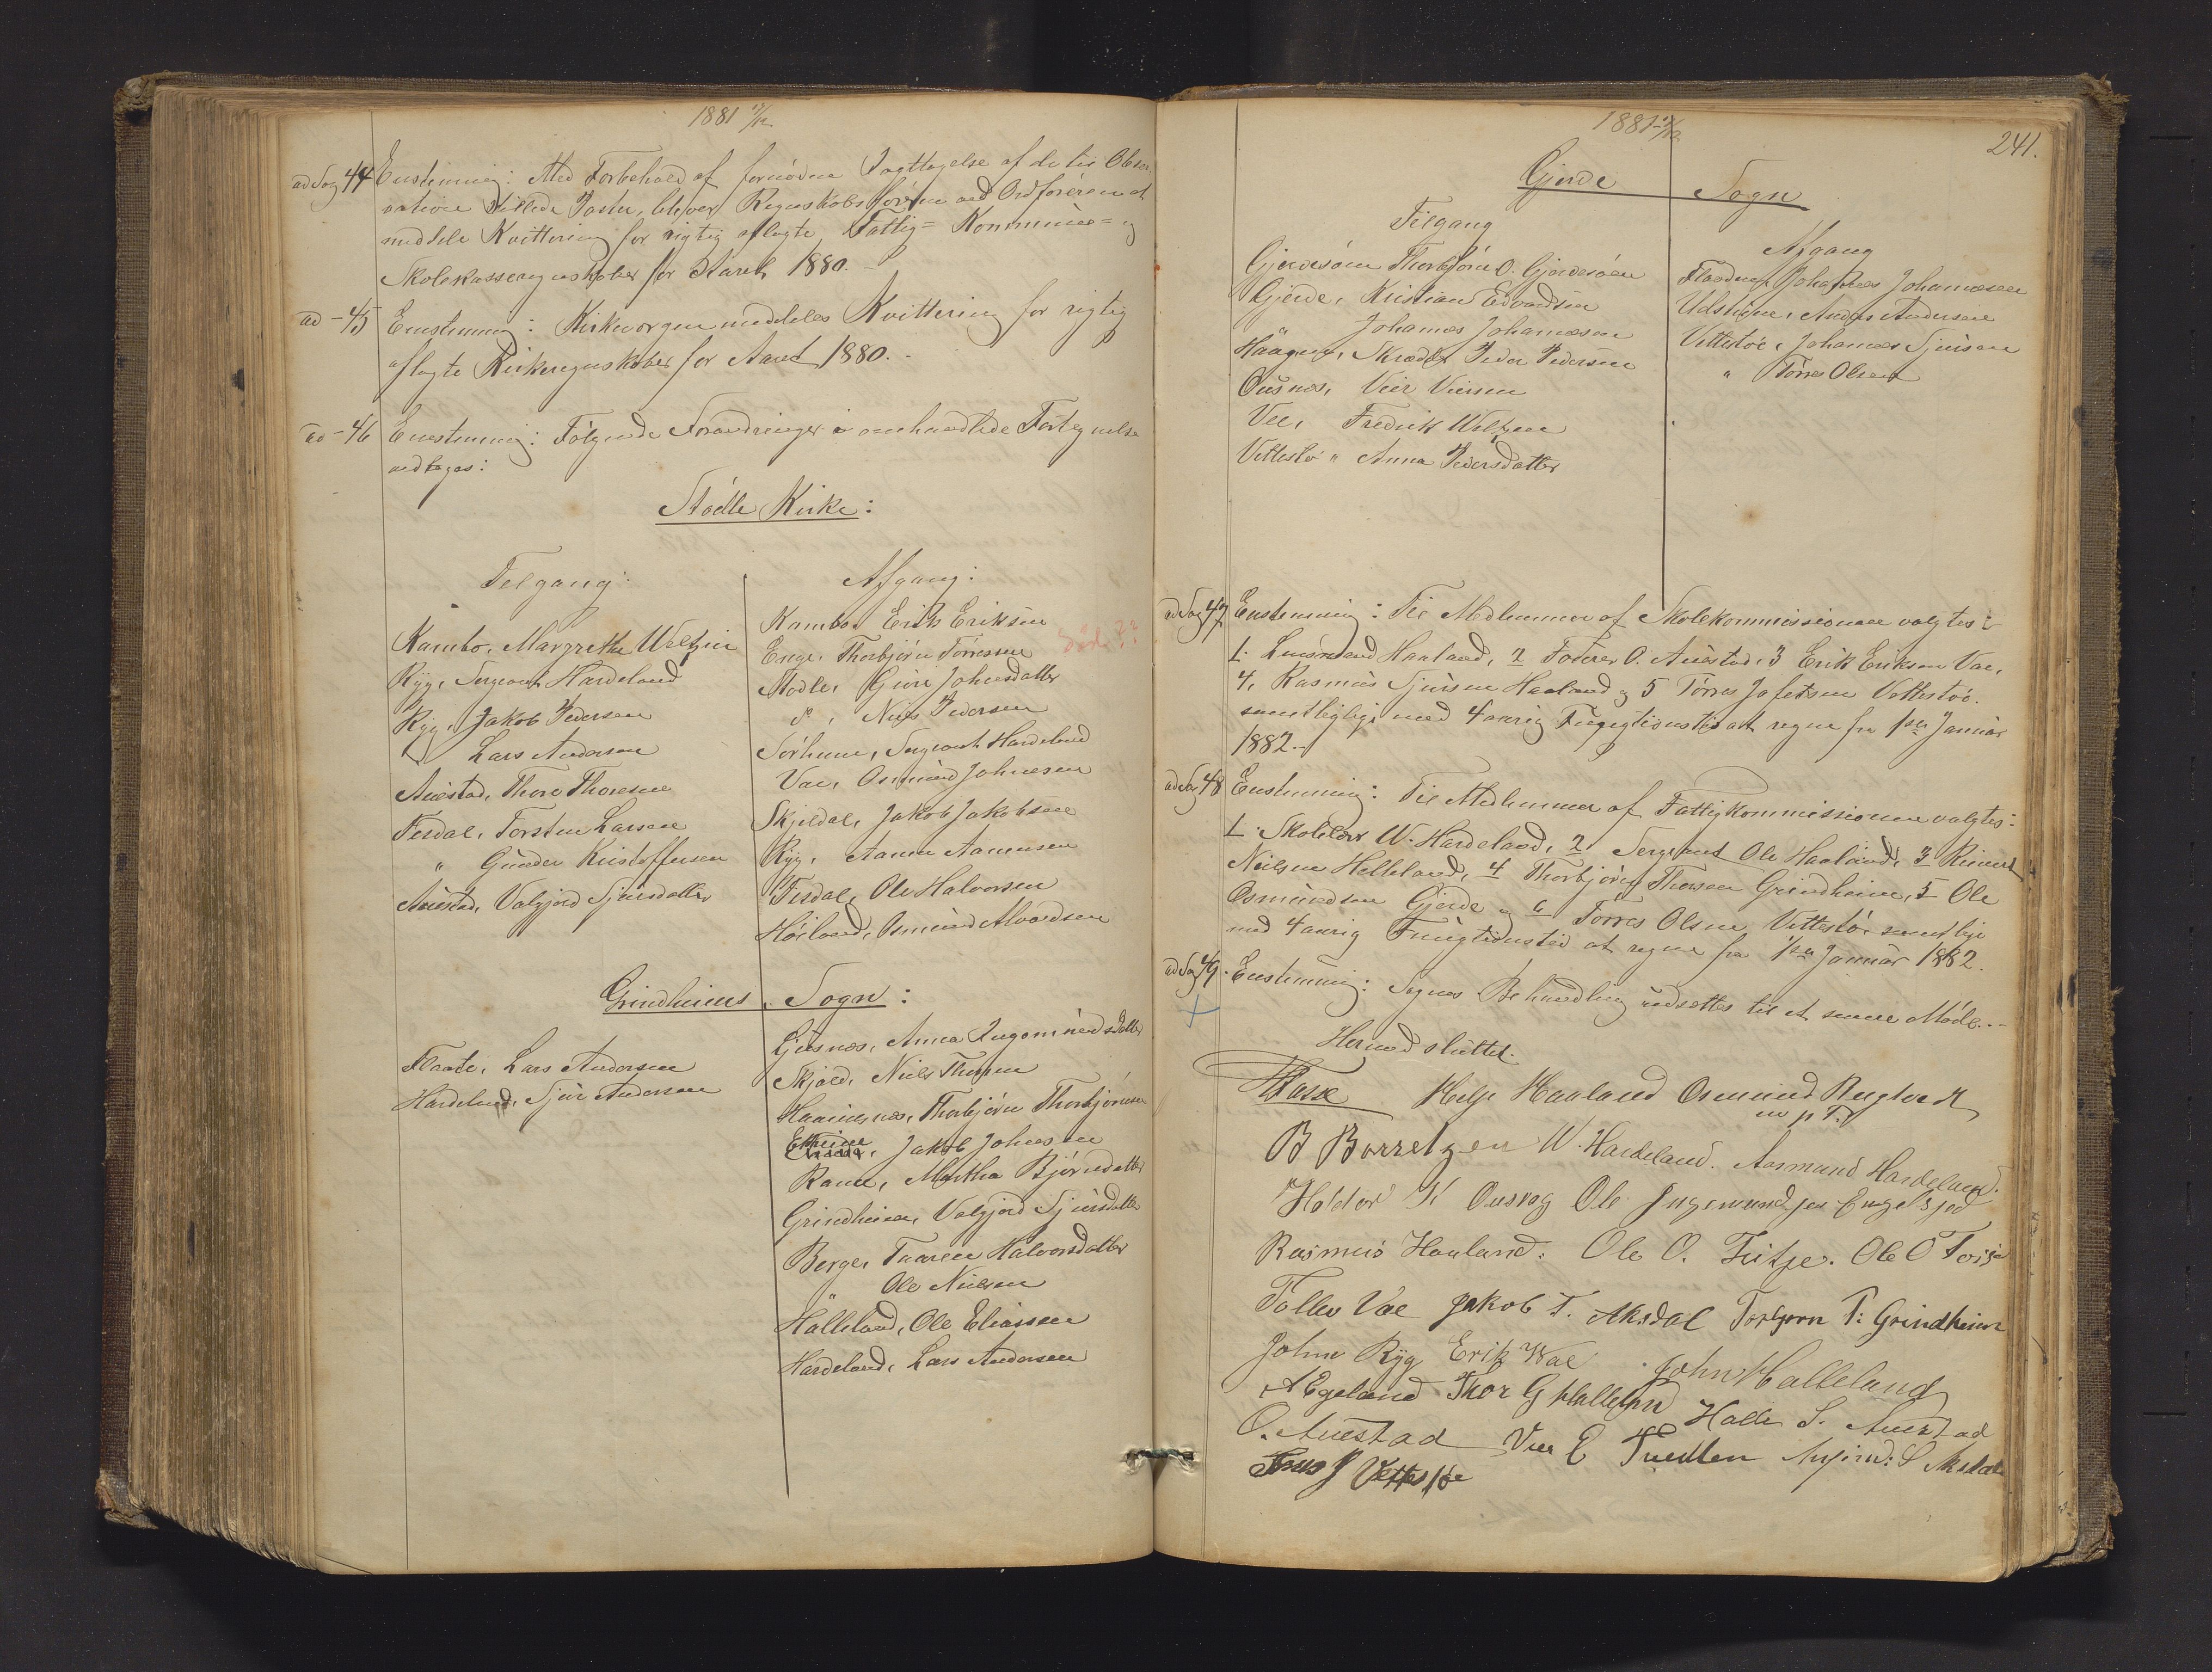 1881 12/12
ad Sag 44 Enstemmig: Med Forbehold af fornødne Iagttagelse af de til Obser-
vatione stillede Poster, bliver Regnskabsføreren ved Ordføreren at
meddele Kvittering for rigtig aflagte Fattig= Kommune= og
Skolekasseregnskaber for Aaret 1880. -
ad - 45 Enstemmig: Kirkevergen meddeles Kvittering for rigtig
aflagte Kirkeregnskaber for Aaret 1880. -
ad - 46 Enstemmig: Følgende Forandringer i omhandlede Fortegnelse
vedtages:
Stødle Kirke:
Tilgang:
Kambo, Margrethe Weltzin
Ryg, Sergeant Hardeland
Ryg, Jakob Pedersen
" Lars Andersen
Auestad, Thore Thoresen
Tesdal, Torsten Larsen
" Gunder Kristoffersen
Auestad, Valgjerd Sjursdatter
Afgang:
Kambo, Erik Eriksen
Enge, Thorbjørn Tørressen død??
Stødle, Guri Johnsdatter
do, Niels Pedersen
Sørhuus, Sergeant Hardeland
Vae, Osmund Johnesen
Skjeldal, Jakob Jakobsen
Ryg, Aamu Aamusen
Tesdal, Ole Halvorsen
Høiland, Osmund Alvardsen
Grindheims Sogn:
Flaate, Lars Andersen
Hardeland, Sjur Andersen
Gjusnæs, Anna Ingomundsdatter
Skjold, Niels Thorsen
Haaiusnæs, Thorbjørn Thorbjørnsen
Ekreine, Jakob Johnsen
Rame, Martha Bjørnsdatter
Grindheim, Valgjerd Sjursdatter
Berge, Taaren Halvorsdatter
" Ole Nielsen
Hålleland, Ole Eliassen
Hardeland, Lars Andersen
1881 12/12
241.
Gjerde Sogn
Tilgang
Gjerdesøen Thorbjørn O. Gjerdesøen
Gjerde, Kristian Edvardsen
" Johannes Johannesen
Haagenes, Skræder Peder Pedersen
Ousnes, Vier Viersen
Vee, Fredrik Weltzen
Vettestø " Anna Pedersdatter
Afgang
Flaadnes Johannes Johannesen
Udsteine, Anders Andersen
Vettestøe, Johannes Sjursen
" Tørres Olsen
ad Sag 47 Enstemmig: Til Medlemmer af Skolekommissionen valgtes:
1. Lensmand Haaland, 2 Føderer O. Auestad, 3 Erik Eriksen Vae,
4, Rasmus Sjursen Haaland og 5 Tørres Jofetsen Vettestøe.
samtlige med 4 aarig Fungtionstid at regne fra 1ste Januar
1882. -
ad Sag 48 Enstemmig: Til Medlemmer af Fattigkommissionen valgtes:
1. Skolelærer W. Hardeland, 2 Sergeant Ole Haaland, 3 Reinert
Neilsen Helleland, 4 Thorbjørn Thorsen Grindheim, 5 Ole
Osmundsen Gjerde og 6 Tørres Olsen Vettestø samtlige
med 4 aarig Fungtionstid at regne fra 1ste Januar 1882.
ad Sag 49. Enstemmig: Sagens Behandling udsættes til et senere Møde. -
Hermed sluttet.
Helje Haaland Osmund Rugland
m p P.
B Barretzen W. Hardeland. Aasmund Hardeland.
Haldor K Ousvog Ole Ingemundsen Engelsjod
Rasmus Haaland. Ole O. Fitje. Ole O Fosse
Tollev Vae Jakob T. Aksdal Torbjørn T: Grindheim
John Ryg Erik Wae John Halleland
A Egeland Thor G Halleland Halle S. Auestad
O. Auestad Vier E Tuedten S Aksdal
Tørres J Vettestøe